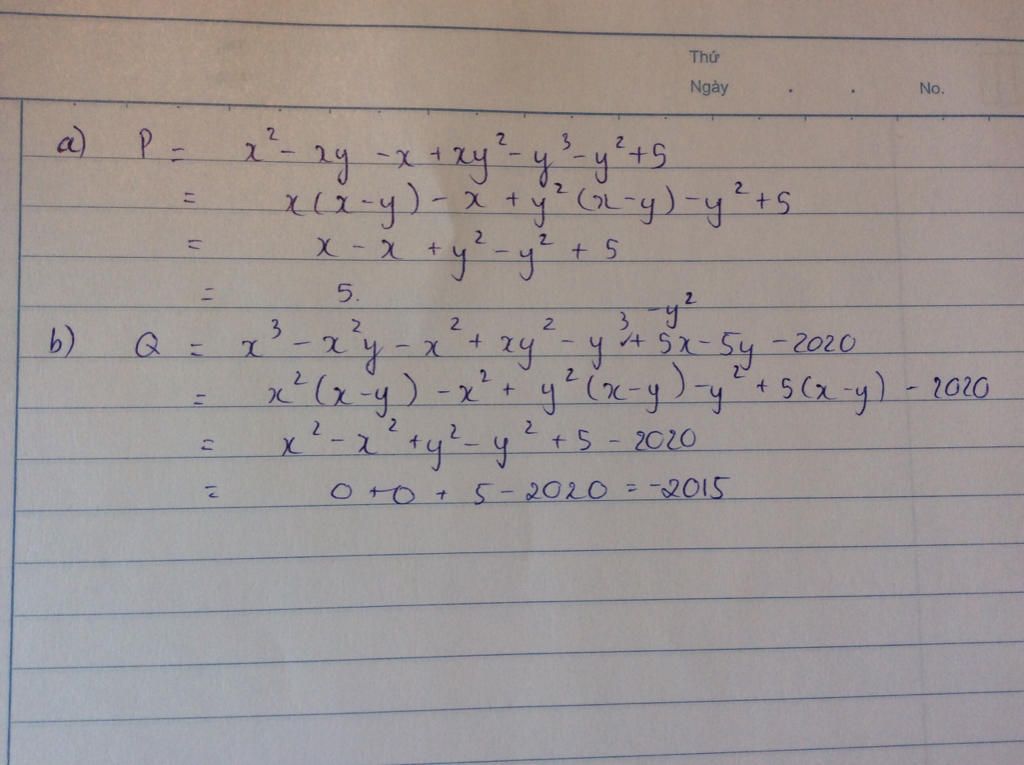 Thứ
Ngày . . No.
a) P = x² - xy - x + xy² - y³ - y² + 5
= x(x-y) - x + y²(x-y) - y² + 5
= x - x + y² - y² + 5
= 5.
b) Q = x³ - x²y - x² + xy² - y³ - y² + 5x - 5y - 2020
= x²(x-y) - x² + y²(x-y) - y² + 5(x-y) - 2020
= x² - x² + y² - y² + 5 - 2020
= 0 + 0 + 5 - 2020 = -2015